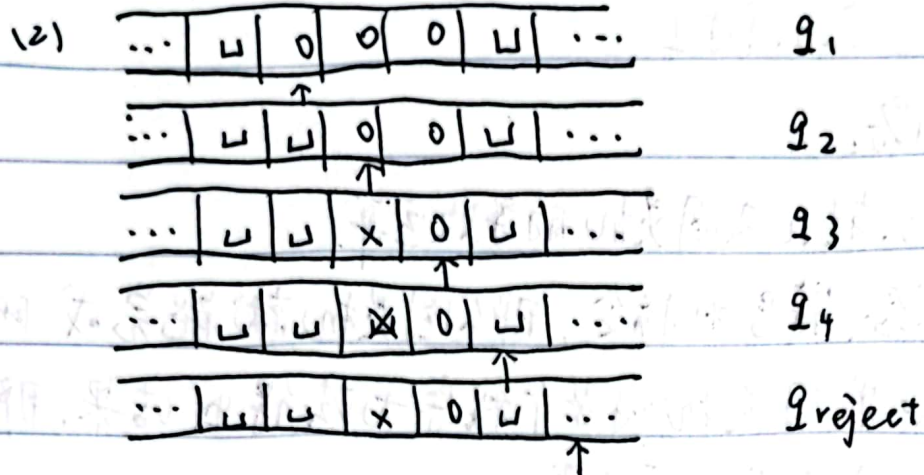 (2) ... ⊔ 0 0 0 ⊔ ... q₁
↑
... ⊔ ⊔ 0 0 ⊔ ... q₂
↑
... ⊔ ⊔ x 0 ⊔ ... q₃
↑
... ⊔ ⊔ x 0 ⊔ ... q₄
↑
... ⊔ ⊔ x 0 ⊔ ... qreject
↑